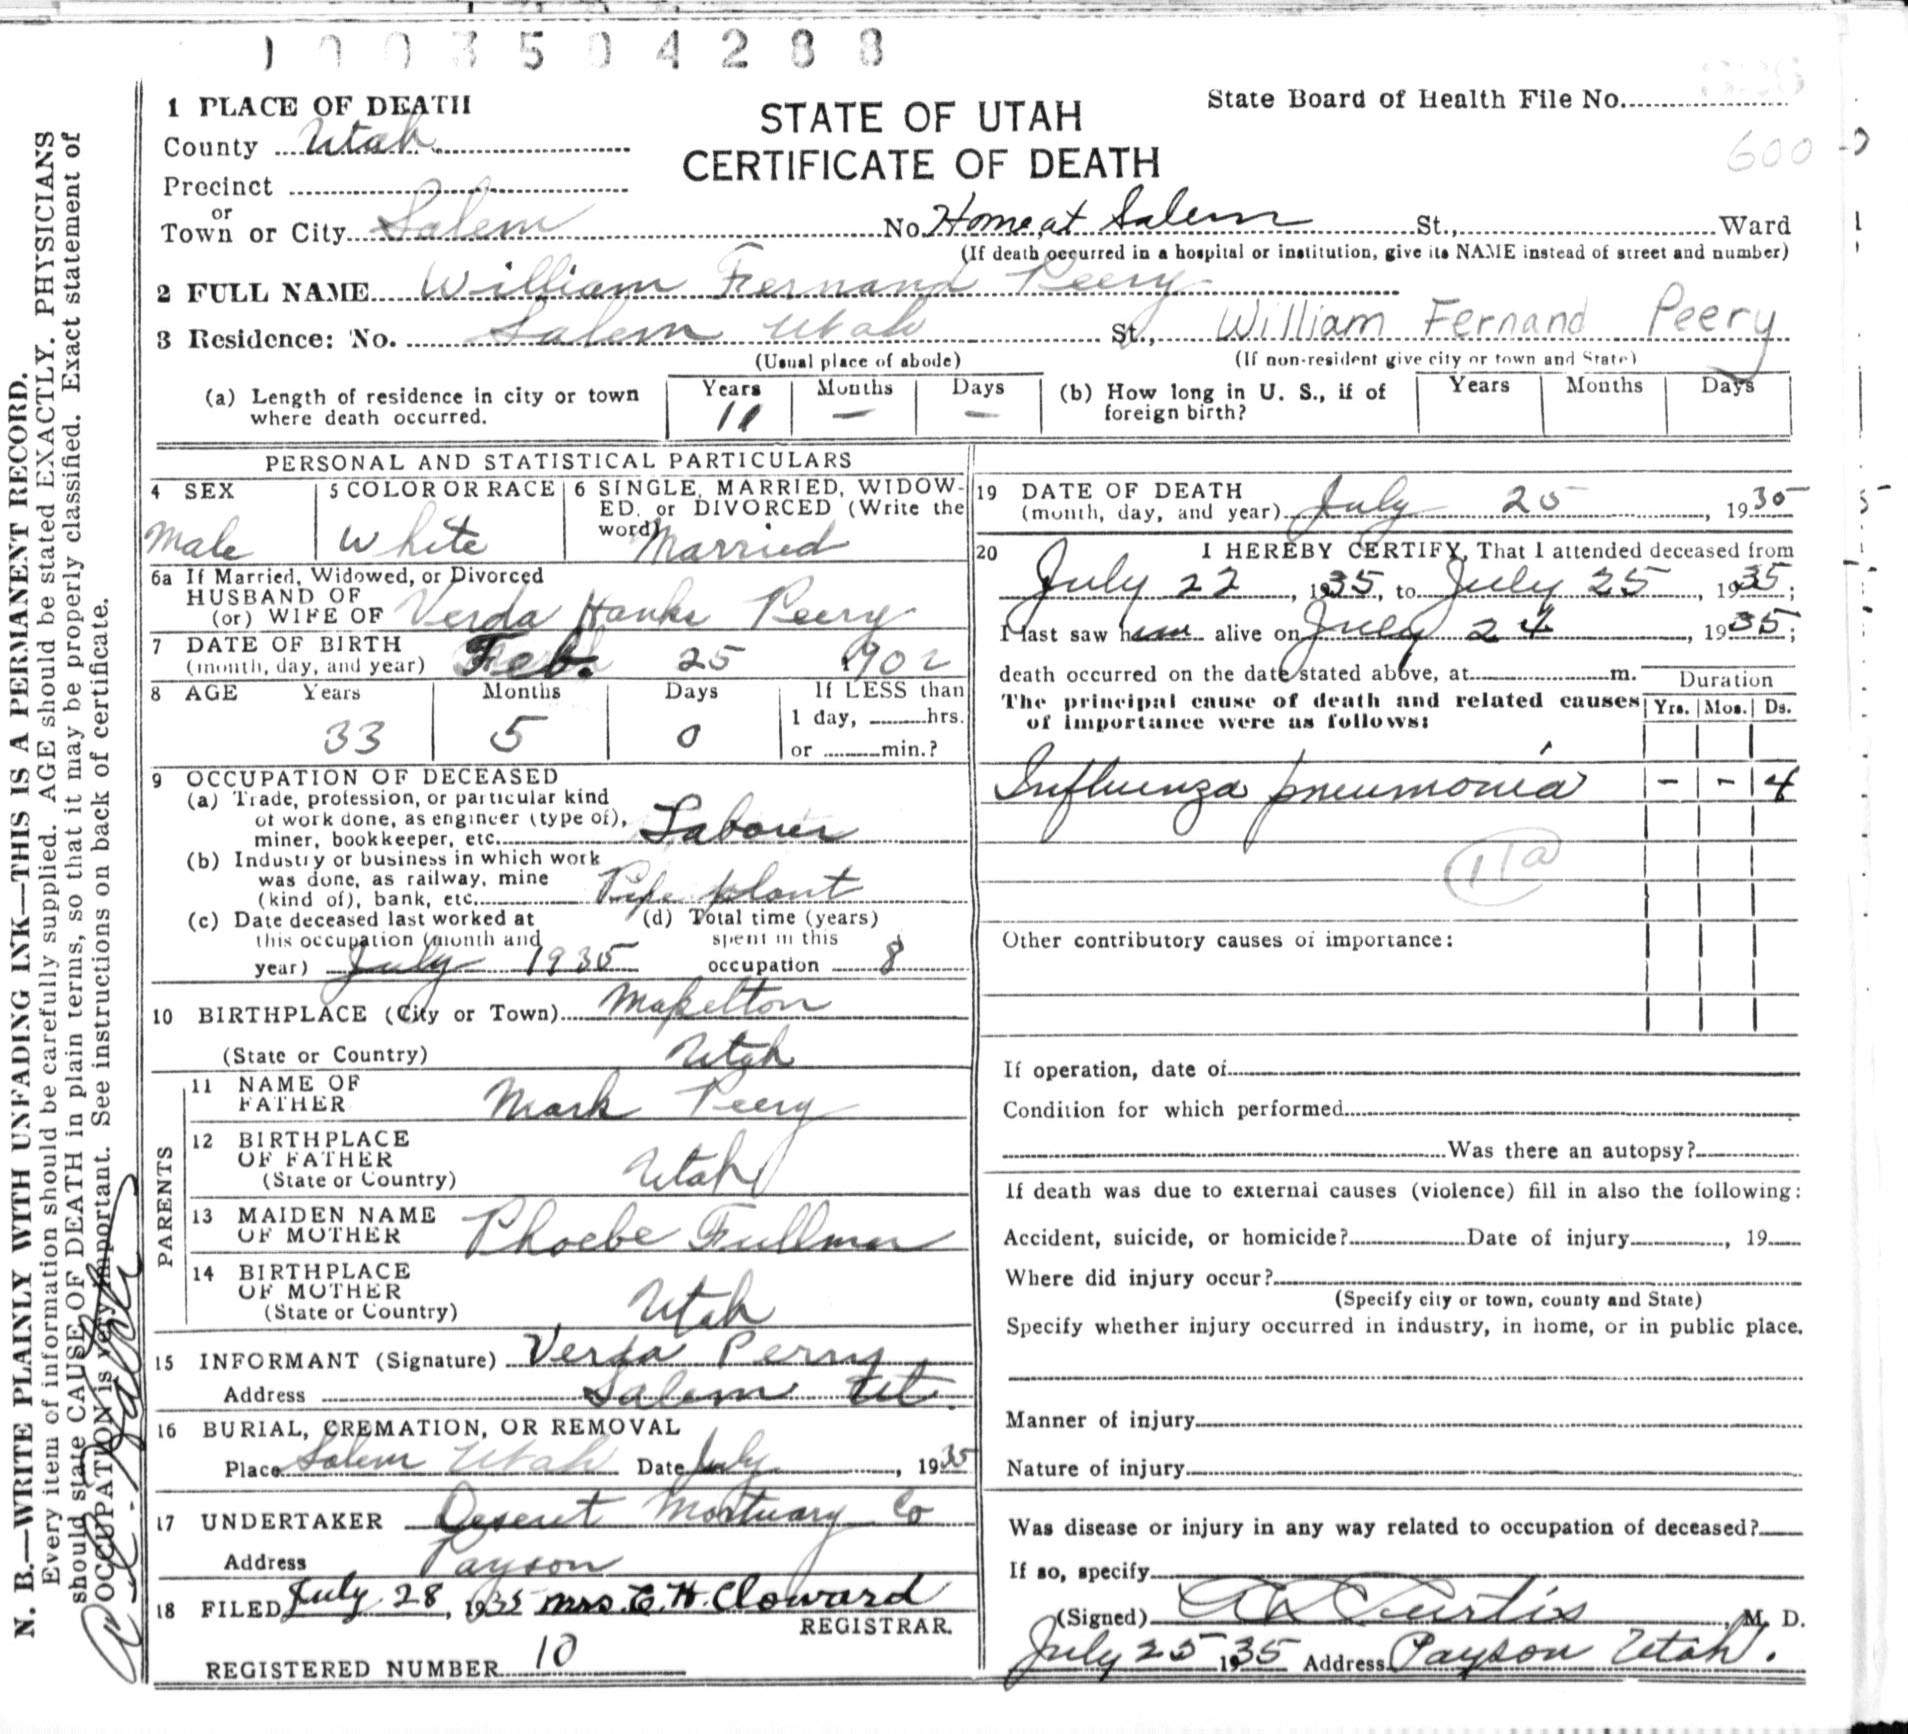 1003504288
1 PLACE OF DEATH
STATE OF UTAH
CERTIFICATE OF DEATH
State Board of Health File No.
600
County Utah
Precinct
or
Town or City Salem No. Home at Salem St., Ward
(If death occurred in a hospital or institution, give its NAME instead of street and number)
2 FULL NAME William Fernand Peery
3 Residence: No. Salem Utah St., William Fernand Peery
(Usual place of abode) (If non-resident give city or town and State)
(a) Length of residence in city or town where death occurred. Years 11 Months — Days —
(b) How long in U. S., if of foreign birth? Years Months Days
PERSONAL AND STATISTICAL PARTICULARS
4 SEX
Male
5 COLOR OR RACE
White
6 SINGLE, MARRIED, WIDOW-
ED, or DIVORCED (Write the
word) Married
6a If Married, Widowed, or Divorced
HUSBAND OF
(or) WIFE OF Verda Hanks Peery
7 DATE OF BIRTH
(month, day, and year) Feb. 25 1902
8 AGE Years Months Days If LESS than
1 day, hrs.
33 5 0
or min.?
9 OCCUPATION OF DECEASED
(a) Trade, profession, or particular kind
of work done, as engineer (type of),
miner, bookkeeper, etc. Laborer
(b) Industry or business in which work
was done, as railway, mine
(kind of), bank, etc. Pipe plant
(c) Date deceased last worked at
this occupation (month and
year) July 1935
(d) Total time (years)
spent in this
occupation 8
10 BIRTHPLACE (City or Town) Mapelton
(State or Country) Utah
PARENTS
11 NAME OF
FATHER Mark Peery
12 BIRTHPLACE
OF FATHER
(State or Country) Utah
13 MAIDEN NAME
OF MOTHER Phoebe Fullmer
14 BIRTHPLACE
OF MOTHER
(State or Country) Utah
15 INFORMANT (Signature) Verda Perry
Address Salem Ut.
16 BURIAL, CREMATION, OR REMOVAL
Place Salem Utah Date July, 1935
17 UNDERTAKER Deseret Mortuary Co
Address Payson
18 FILED July 28, 1935 Mrs. C. H. Cloward
REGISTRAR.
REGISTERED NUMBER 10
19 DATE OF DEATH
(month, day, and year) July 25, 1935
20 I HEREBY CERTIFY, That I attended deceased from
July 22, 1935, to July 25, 1935;
I last saw him alive on July 24, 1935;
death occurred on the date stated above, at m.
Duration
The principal cause of death and related causes
of importance were as follows:
Yrs. Mos. Ds.
Influenza pneumonia - - 4
11a
Other contributory causes of importance:
If operation, date of
Condition for which performed
Was there an autopsy?
If death was due to external causes (violence) fill in also the following:
Accident, suicide, or homicide? Date of injury, 19
Where did injury occur?
(Specify city or town, county and State)
Specify whether injury occurred in industry, in home, or in public place.
Manner of injury
Nature of injury
Was disease or injury in any way related to occupation of deceased?
If so, specify
(Signed) Curtis, M. D.
July 25 1935 Address Payson Utah.
N. B.—WRITE PLAINLY WITH UNFADING INK—THIS IS A PERMANENT RECORD.
Every item of information should be carefully supplied. AGE should be stated EXACTLY. PHYSICIANS
should state CAUSE OF DEATH in plain terms, so that it may be properly classified. Exact statement of
OCCUPATION is very important. See instructions on back of certificate.